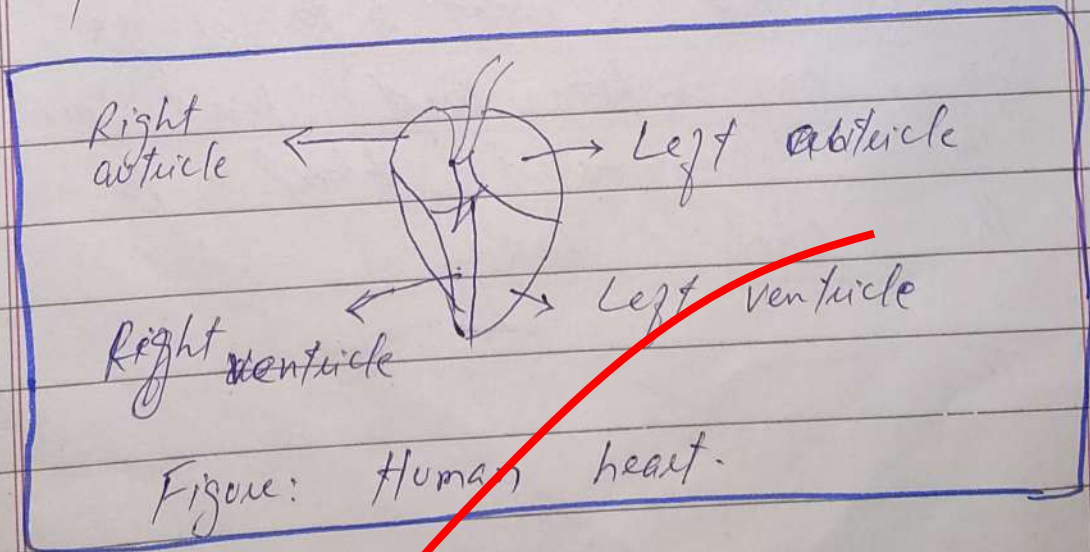 Right
autricle
Left
Right ventricle
Left ventricle
Figure: Human heart.